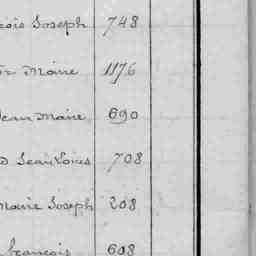 çois Joseph 748
Marie 1176
Jean Marie 690
d Jean Louis 708
Marie Joseph 208
françois 608